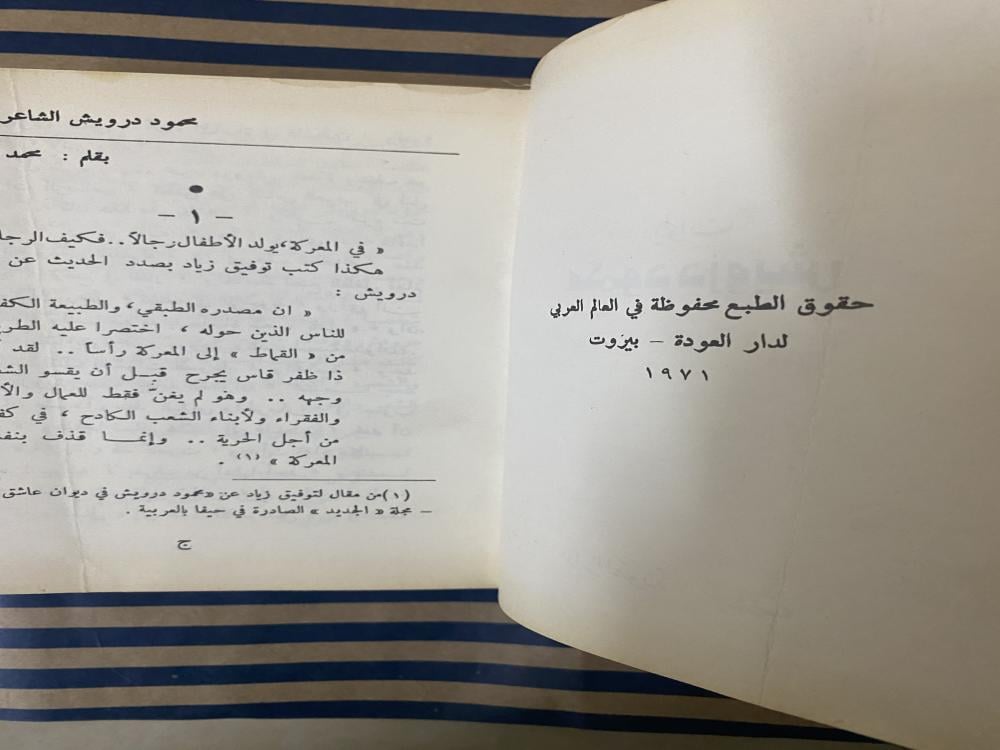 حقوق الطبع محفوظة في العالم العربي
لدار العودة - بيروت
١٩٧١
محمود درويش الشاعر
بقلم : محمد
- ١ -
« في المعركة، يولد الأطفال رجالاً.. فكيف
هكذا كتب توفيق زياد بصدد الحديث عن
درويش :
« ان مصدره الطبقي، والطبيعة
للناس الذين حوله ، اختصرا عليه
من « القماط » إلى المعركة رأساً .. لقد
ذا ظفر قاس يجرح قبل أن يقسو
وجهه .. وهو لم يغنّ فقط للعمال
والفقراء ولأبناء الشعب الكادح ، في
من أجل الحرية .. وإنما قذف
المعركة » (١) .
(١) من مقال لتوفيق زياد عن «محمود درويش في ديوان عاشق
– مجلة « الجديد » الصادرة في حيفا بالعربية .
ج